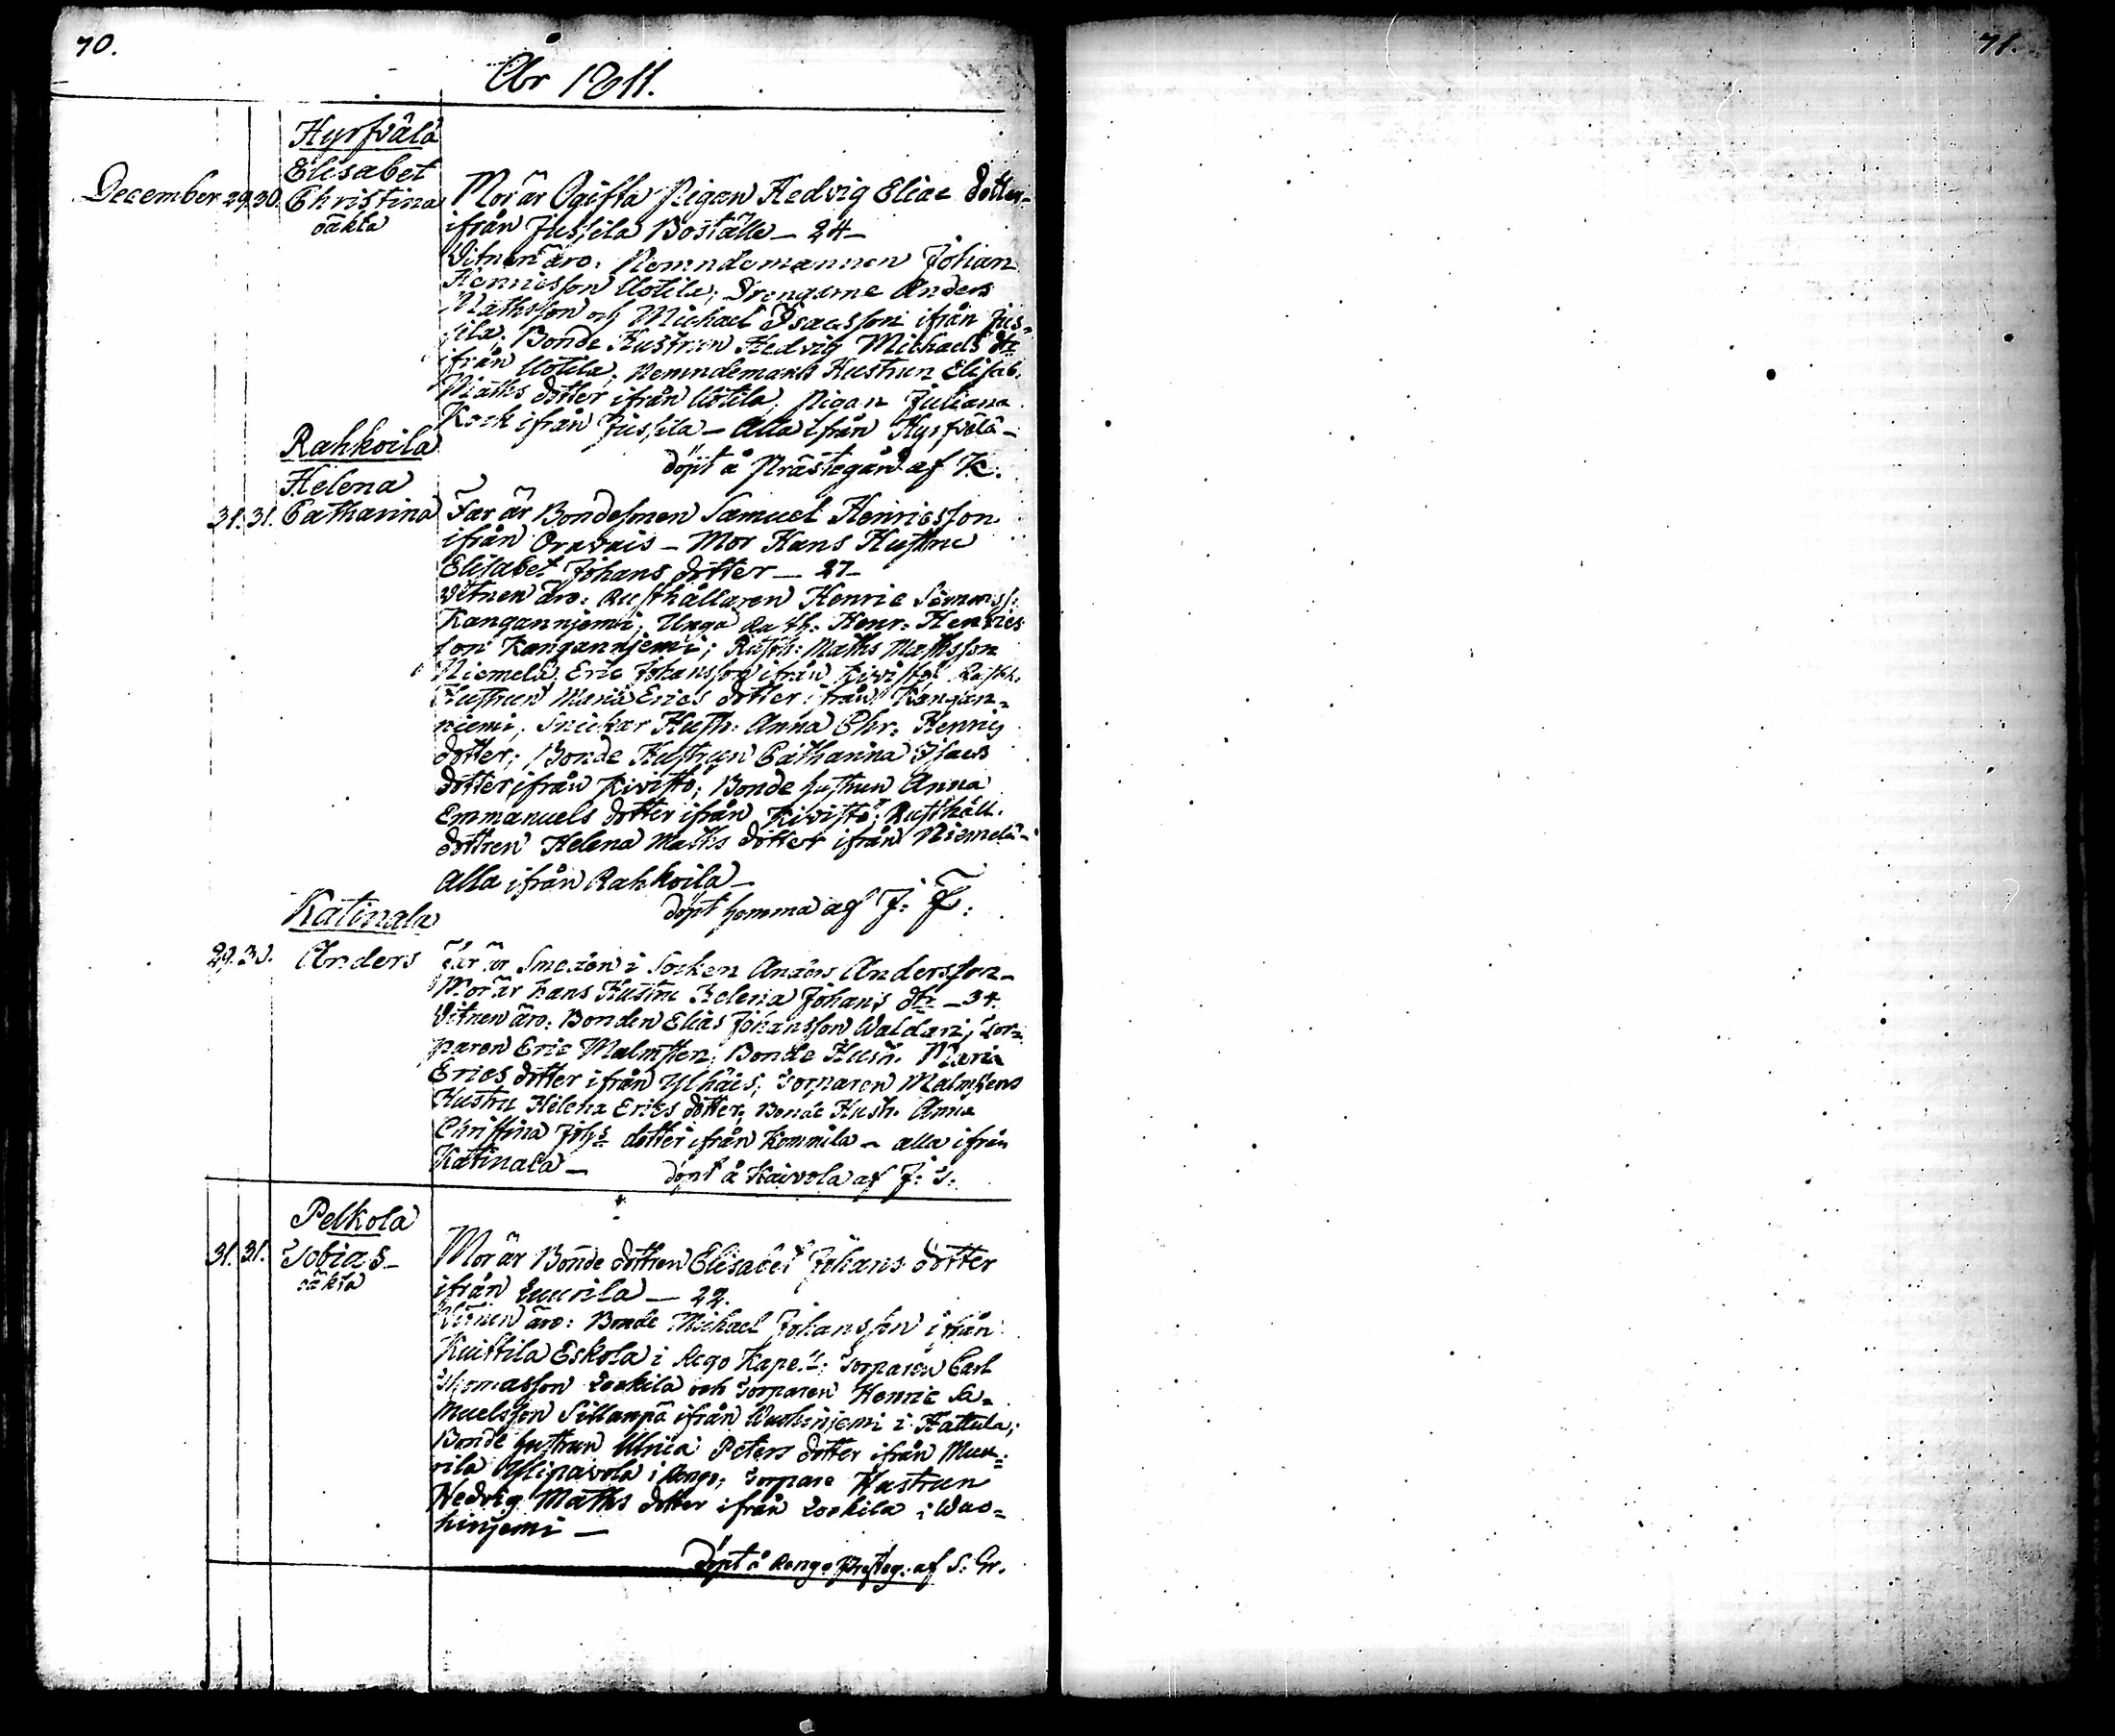 70.
71.
År 1811.
Hyrfvälä
Elisabet
December 29. 30. Christina
oäkta
Mor är Ogifta Pigan Hedvig Eliae dotter
ifrån Jussila Boställe — 24 —
Vitnen äro: Nemndemannen Johan
Henricsson Uotila; Drengarne Anders
Mathsson och Michael Isacsson ifrån Jus-
sila; Bonde Hustrun Hedvig Michaels dtr
ifrån Uotila; Nemndemans Hustrun Elisab.
Maths dotter ifrån Uotila; Pigan Juliana
Kock ifrån Jussila — Alla ifrån Hyrfvälä —
döpt å Prästegård af K.
Rahkoila
Helena
31. 31. Catharina
Far är Bondesonen Samuel Henricsson
ifrån Oravais — Mor Hans Hustru
Elisabet Johans dotter — 27 —
Vitnen äro: Rusthållaren Henric Simonss:
Kanganniemi; Unga Rusth: Henr: Henrics
son Kanganniemi; Rusth: Maths Mathsson
Niemelä, Eric Johansson ifrån Kivistö Rusth.
Hustrun Maria Erics dotter ifrån Kangan-
niemi, Snickar Husth: Anna Chr: Henrics
dotter; Bonde Hustrun Catharina Isacs
dotter ifrån Kivistö; Bonde hustrun Anna
Emmanuels dotter ifrån Kivistö; Rusthåll.
dottren Helena Maths dotter ifrån Niemelä —
alla ifrån Rahkoila —
döpt hemma af J: F:
Katinala
29. 30. Anders
Far är Smeden i Socken Anders Andersson —
Mor är hans Hustru Helena Johans dtr — 34.
Vitnen äro: Bonden Elias Johansson Waldari; Tor-
paren Eric Malmsten; Bonde Hustr. Maria
Erics dotter ifrån Ylhäis; Torparen Malmstens
Hustru Helena Erics dotter; Bonde Hustr. Anna
Christina Johs dotter ifrån Kommila — alla ifrån
Katinala — döpt å Kaivola af J: T:
Pelkola
31. 31. Tobias —
oäkta
Mor är Bonde dottren Elisabet Johans dotter
ifrån Luurila — 22.
Vitnen äro: Bonde Michael Johansson ifrån
Kuittila Eskola i Rego Kapell; Torparen Carl
Thomasson Lockila och Torparen Henric Sa-
muelsson Sillanpä ifrån Wuohiniemi i Hattula;
Bonde hustrun Ulrica Peters dotter ifrån Muu-
rila Ylipavola i Rengo; Torpare Hustrun
Hedvig Maths dotter ifrån Lockila i Wuo-
hiniemi —
döpt å Rengo Presteg. af S. Gr.